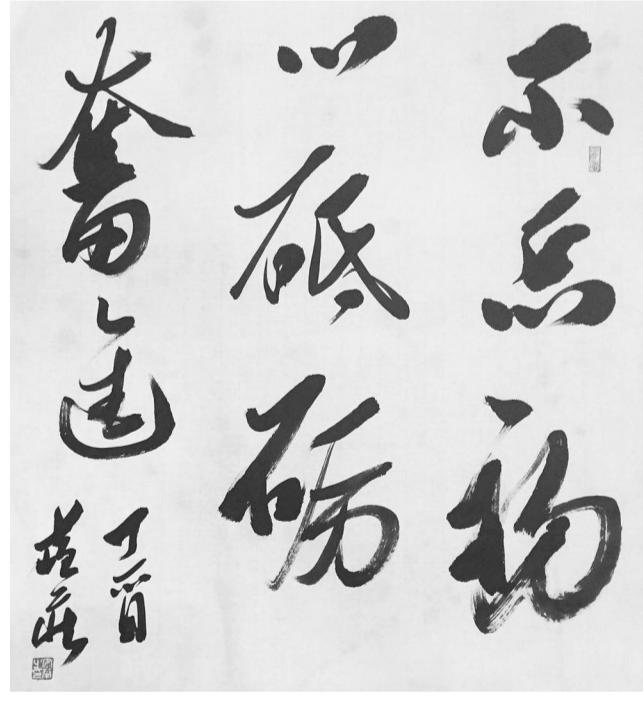 不忘初
心砥砺
奮進
丁酉